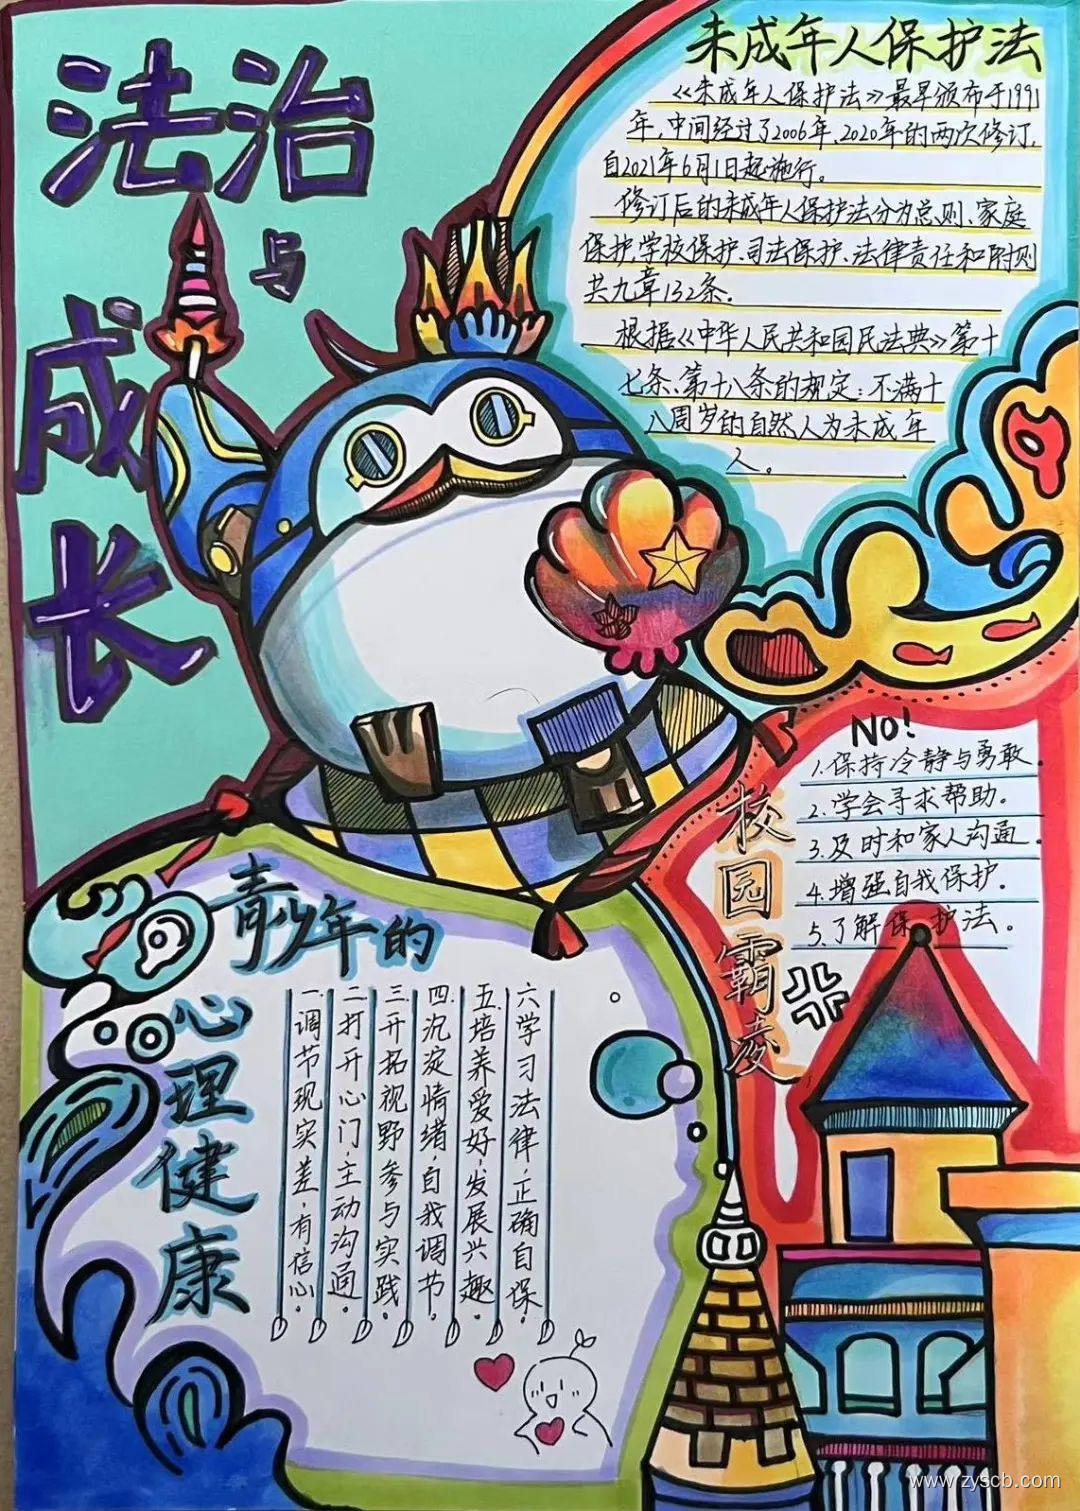 法治
与
成
长
未成年人保护法
《未成年人保护法》最早颁布于1991
年，中间经过了2006年、2020年的两次修订，
自2021年6月1日起施行。
修订后的未成年人保护法分为总则、家庭
保护、学校保护、司法保护、法律责任和附则
共九章132条。
根据《中华人民共和国民法典》第十
七条、第十八条的规定：不满十
八周岁的自然人为未成年
人。
校园霸凌
NO!
1.保持冷静与勇敢。
2.学会寻求帮助。
3.及时和家人沟通。
4.增强自我保护。
5.了解保护法。
青少年的
心理健康
一.调节现实差，有信心。
二.打开心门，主动沟通。
三.开拓视野参与实践。
四.沉淀情绪自我调节。
五.培养爱好，发展兴趣。
六.学习法律，正确自保。
www.zyscb.com